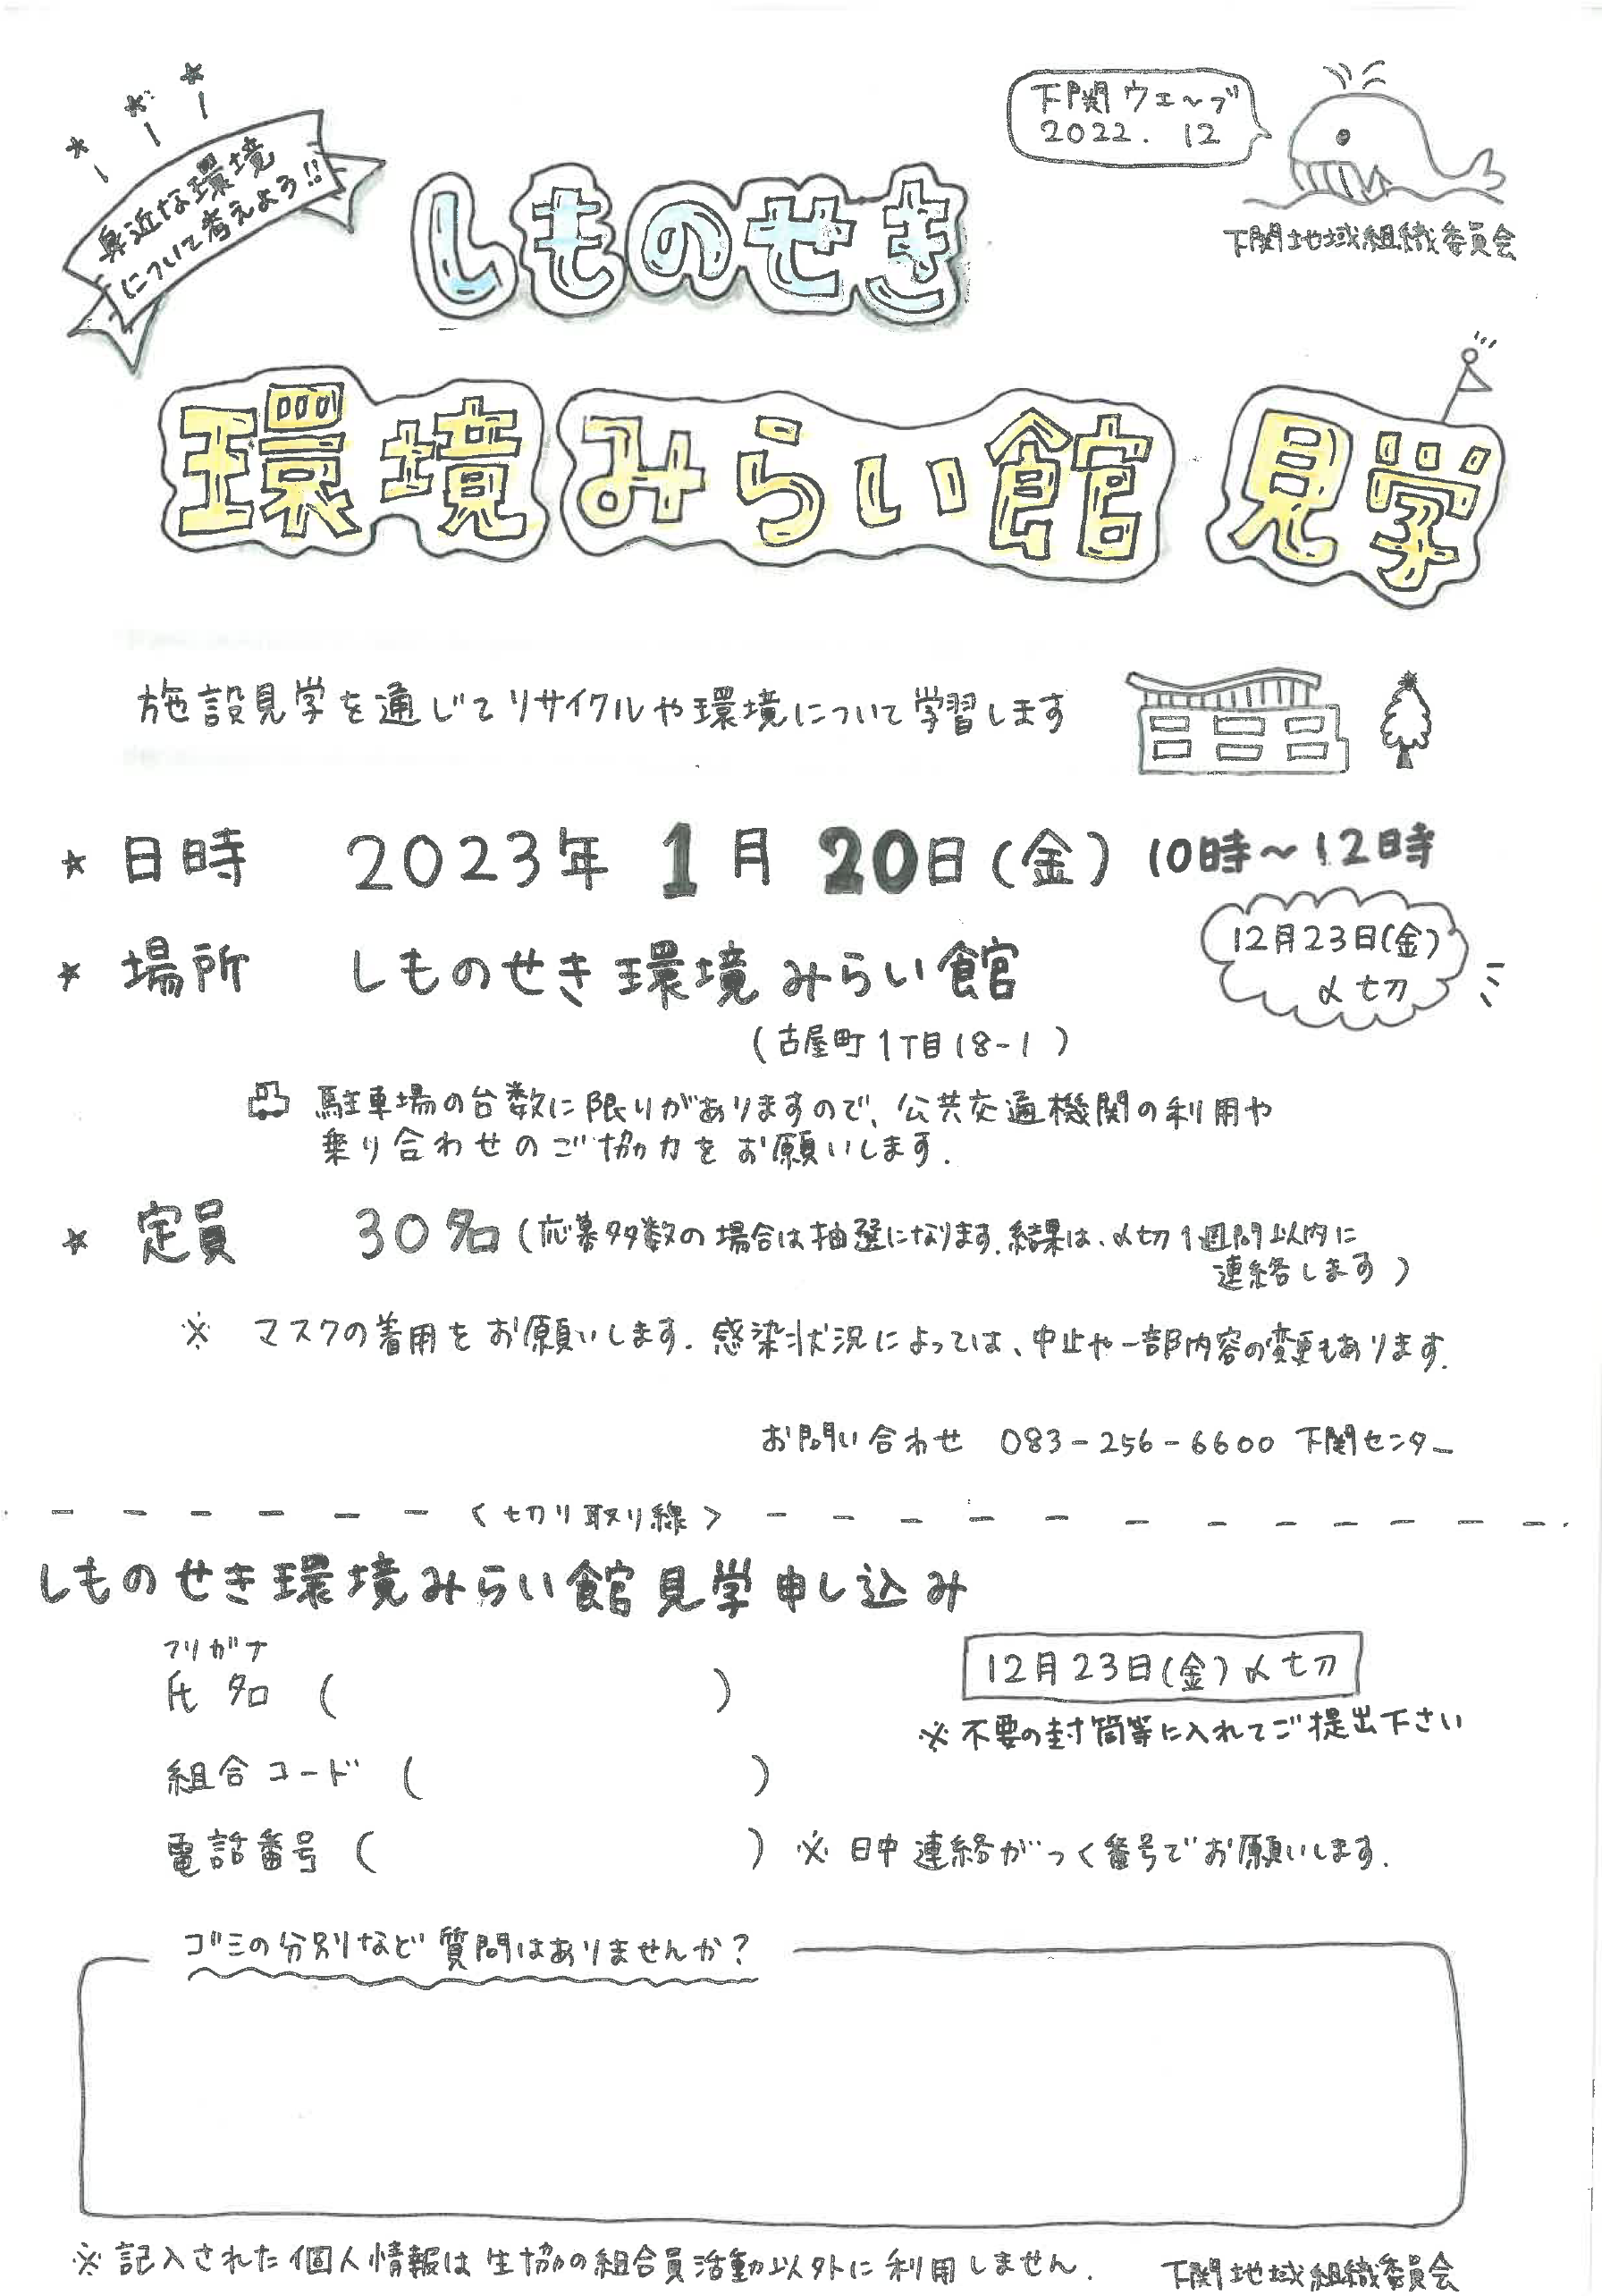 下関ウェ〜ブ
2022. 12
下関地域組織委員会
身近な環境
について考えよう!!
しものせき
環境みらい館 見学
施設見学を通じてリサイクルや環境について学習します
★ 日時 2023年 1月 20日(金) 10時〜12時
★ 場所 しものせき環境みらい館
12月23日(金)
〆切
(古屋町1丁目18-1)
駐車場の台数に限りがありますので、公共交通機関の利用や
乗り合わせのご協力をお願いします.
★ 定員 30名(応募多数の場合は抽選になります.結果は、〆切1週間以内に
連絡します)
※ マスクの着用をお願いします. 感染状況によっては、中止や一部内容の変更もあります.
お問い合わせ 083-256-6600 下関センター
<切り取り線>
しものせき環境みらい館見学申し込み
フリガナ
氏名 ( )
12月23日(金)〆切
※不要の封筒等に入れてご提出下さい
組合コード ( )
電話番号 ( ) ※ 日中連絡がつく番号でお願いします.
ゴミの分別など質問はありませんか?
※記入された個人情報は生協の組合員活動以外に利用しません. 下関地域組織委員会